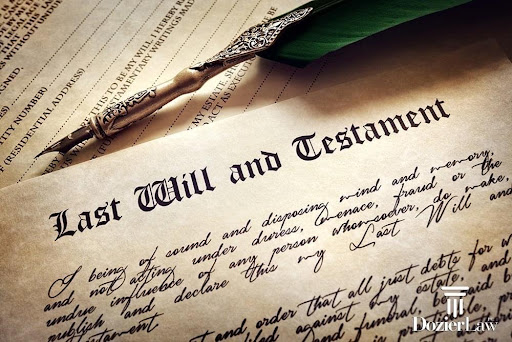 SIGNED
TITY NUMBER)
F (RESIDENTIAL ADDRESS)
THIS TO BE MY WILL, I HEREBY RE
AMENTARY WRITINGS MADE
MY ESTATE, SH
ACT AS EXECU
Last Will and Testament
I being of sound and disposing mind and memory,
and not acting under duress, menace, fraud or the
undue influence of any person whomsoever, do make,
publish and declare this my Last Will and
Testament
and order that all just debts for w
against my estate, and
and funeral, be paid b
DozierLaw